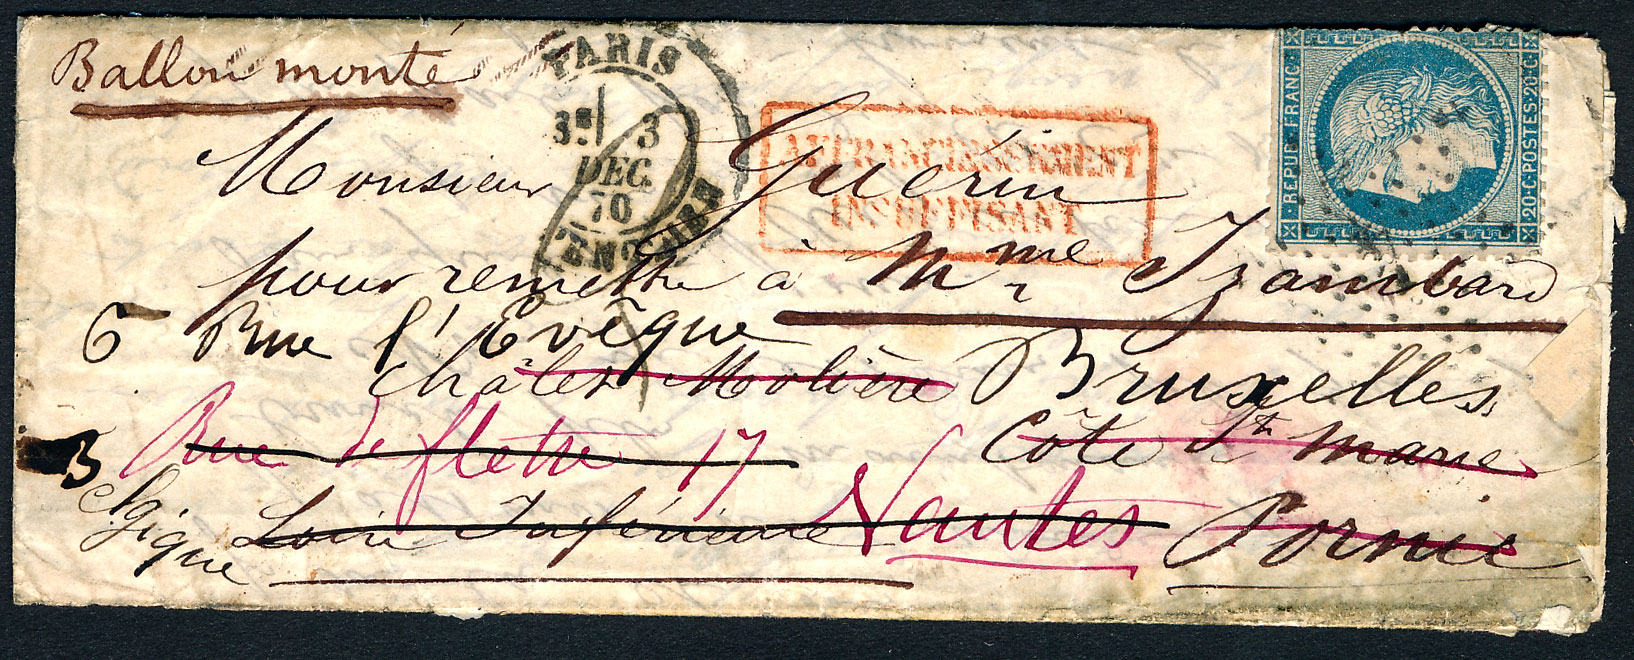 Ballon monté
PARIS
3E 3
DEC.
70
REPUB. FRANC.
20·C·POSTES·20·C
AFFRANCHISSEMENT
INSUFFISANT
Monsieur Guérin
pour remettre à Mme Izambard
6 Rue l'Evêque
Châlet Molière Bruxelles
Rue de flette 17 Côte Ste Marie
Loire Inférieure Nantes Pornic
Belgique